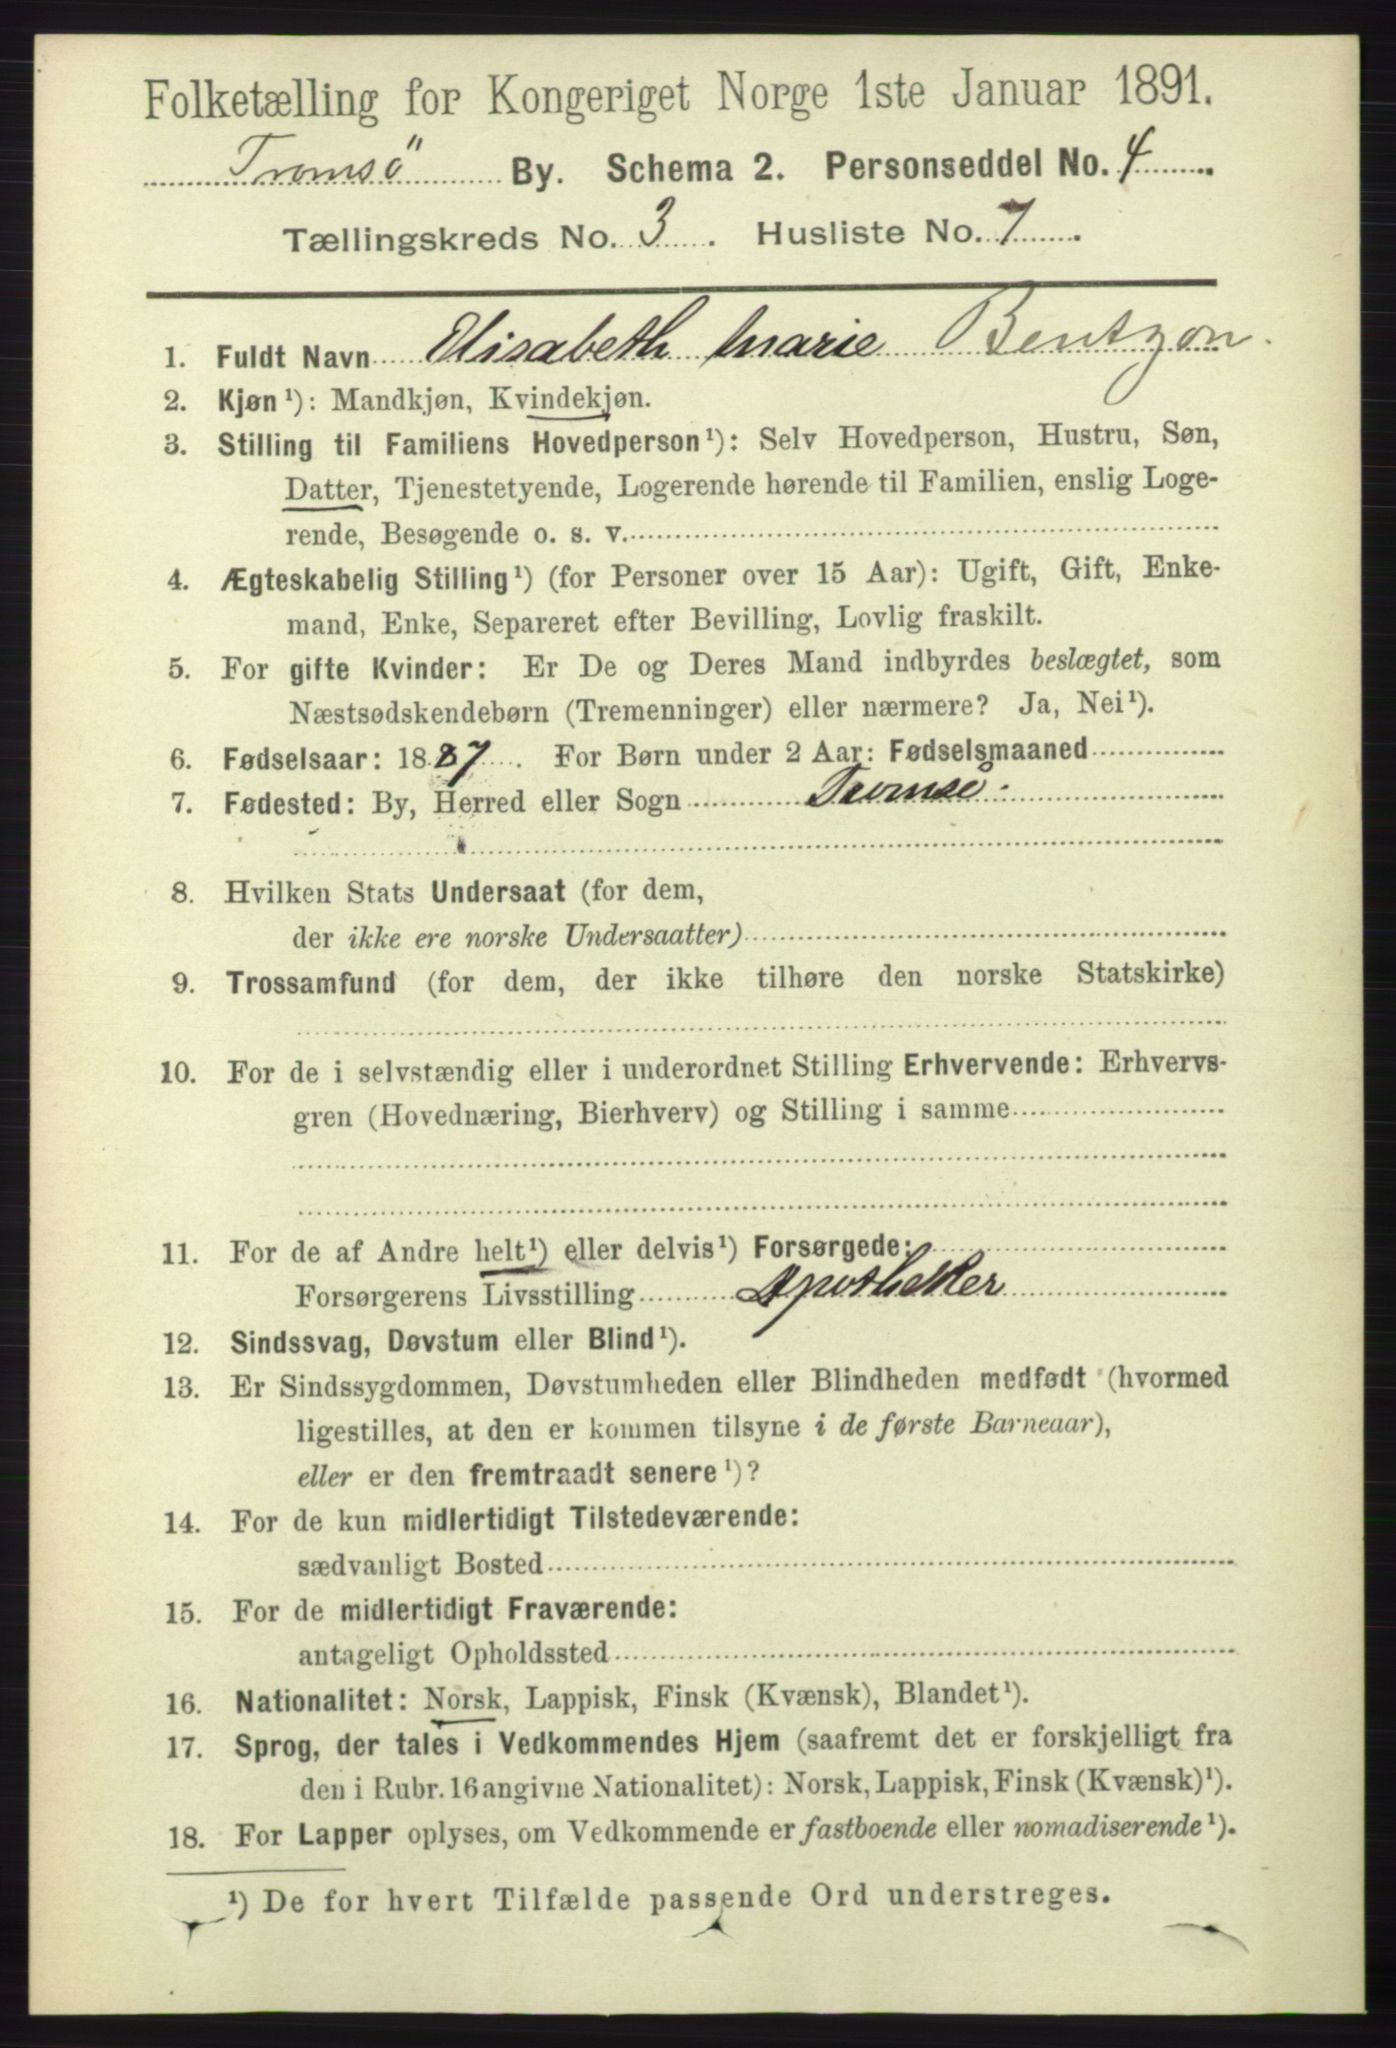 Folketælling for Kongeriget Norge 1ste Januar 1891.
Tromsö By. Schema 2. Personseddel No. 4
Tællingskreds No. 3. Husliste No. 7.
1. Fuldt Navn Elisabeth Marie Bentzon.
2. Kjøn¹): Mandkjøn, Kvindekjøn.
3. Stilling til Familiens Hovedperson¹): Selv Hovedperson, Hustru, Søn,
Datter, Tjenestetyende, Logerende hørende til Familien, enslig Loge-
rende, Besøgende o. s. v.
4. Ægteskabelig Stilling¹) (for Personer over 15 Aar): Ugift, Gift, Enke-
mand, Enke, Separeret efter Bevilling, Lovlig fraskilt.
5. For gifte Kvinder: Er De og Deres Mand indbyrdes beslægtet, som
Næstsødskendebørn (Tremenninger) eller nærmere? Ja, Nei¹).
6. Fødselsaar: 1887. For Børn under 2 Aar: Fødselsmaaned
7. Fødested: By, Herred eller Sogn Tromsö.
8. Hvilken Stats Undersaat (for dem,
der ikke ere norske Undersaatter)
9. Trossamfund (for dem, der ikke tilhøre den norske Statskirke)
10. For de i selvstændig eller i underordnet Stilling Erhvervende: Erhvervs-
gren (Hovednæring, Bierhverv) og Stilling i samme
11. For de af Andre helt¹) eller delvis¹) Forsørgede:
Forsørgerens Livsstilling Apotheker
12. Sindssvag, Døvstum eller Blind¹).
13. Er Sindssygdommen, Døvstumheden eller Blindheden medfødt (hvormed
ligestilles, at den er kommen tilsyne i de første Barneaar),
eller er den fremtraadt senere¹)?
14. For de kun midlertidigt Tilstedeværende:
sædvanligt Bosted
15. For de midlertidigt Fraværende:
antageligt Opholdssted
16. Nationalitet: Norsk, Lappisk, Finsk (Kvænsk), Blandet¹).
17. Sprog, der tales i Vedkommendes Hjem (saafremt det er forskjelligt fra
den i Rubr. 16 angivne Nationalitet): Norsk, Lappisk, Finsk (Kvænsk)¹).
18. For Lapper oplyses, om Vedkommende er fastboende eller nomadiserende¹).
¹) De for hvert Tilfælde passende Ord understreges.